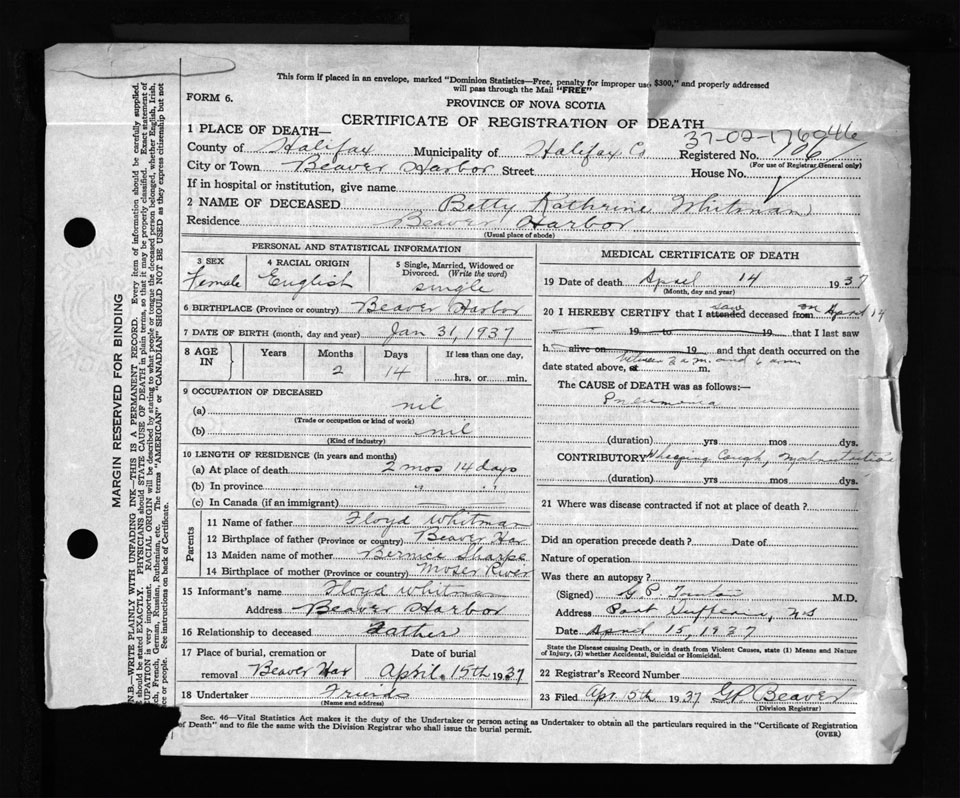 This form if placed in an envelope, marked "Dominion Statistics—Free, penalty for improper use $300," and properly addressed
will pass through the Mail "FREE"
FORM 6.
PROVINCE OF NOVA SCOTIA
CERTIFICATE OF REGISTRATION OF DEATH
1 PLACE OF DEATH—
County of Halifax Municipality of Halifax Co Registered No.
(For use of Registrar General only)
City or Town Beaver Harbor Street House No.
If in hospital or institution, give name
2 NAME OF DECEASED Betty Kathrine Whitman
Residence Beaver Harbor
(Usual place of abode)
PERSONAL AND STATISTICAL INFORMATION
3 SEX
Female
4 RACIAL ORIGIN
English
5 Single, Married, Widowed or
Divorced. (Write the word)
single
6 BIRTHPLACE (Province or country) Beaver Harbor
7 DATE OF BIRTH (month, day and year) Jan 31, 1937
8 AGE IN Years Months Days If less than one day,
2 14 hrs. or min.
9 OCCUPATION OF DECEASED
(a) nil
(Trade or occupation or kind of work)
(b) nil
(Kind of industry)
10 LENGTH OF RESIDENCE (in years and months)
(a) At place of death 2 mos 14 days
(b) In province " "
(c) In Canada (if an immigrant)
Parents
11 Name of father Floyd Whitman
12 Birthplace of father (Province or country) Beaver Har
13 Maiden name of mother Bernice Sharpe
14 Birthplace of mother (Province or country) Moser River
15 Informant's name Floyd Whitman
Address Beaver Harbor
16 Relationship to deceased Father
17 Place of burial, cremation or
removal Beaver Har
Date of burial
April 15th 1937
18 Undertaker Friends
(Name and address)
MEDICAL CERTIFICATE OF DEATH
19 Date of death April 14 1937
(Month, day and year)
20 I HEREBY CERTIFY that I attended saw deceased from on April 14
19 to 19 that I last saw
h alive on 19 and that death occurred on the
date stated above, at between 2 a m. and 6 a m m.
The CAUSE of DEATH was as follows:—
Pneumonia
(duration) yrs mos dys.
CONTRIBUTORY Whooping Cough, Malnutrition
(duration) yrs mos dys.
21 Where was disease contracted if not at place of death?
Did an operation precede death? Date of
Nature of operation
Was there an autopsy?
(Signed) G. P. M.D.
Address Port Dufferin, N S
Date April 15, 1937
State the Disease causing Death, or in death from Violent Causes, state (1) Means and Nature
of Injury, (2) whether Accidental, Suicidal or Homicidal.
22 Registrar's Record Number
23 Filed Apr 5th 1937 Beaver
(Division Registrar)
Sec. 46—Vital Statistics Act makes it the duty of the Undertaker or person acting as Undertaker to obtain all the particulars required in the "Certificate of Registration
of Death" and to file the same with the Division Registrar who shall issue the burial permit.
(OVER)
MARGIN RESERVED FOR BINDING
N.B.—WRITE PLAINLY WITH UNFADING INK—THIS IS A PERMANENT RECORD. Every item of information should be carefully supplied.
should be stated EXACTLY. PHYSICIANS should STATE CAUSE OF DEATH in plain terms, so that it may be properly classified. Exact statement of
UPATION is very important. RACIAL ORIGIN will be described by stating to what people or tongue the deceased person belonged, whether English, Irish,
ch, French, German, Russian, Ruthenian, etc. The terms "AMERICAN" or "CANADIAN" SHOULD NOT BE USED as they express citizenship but not
ce or people. See instructions on back of Certificate.